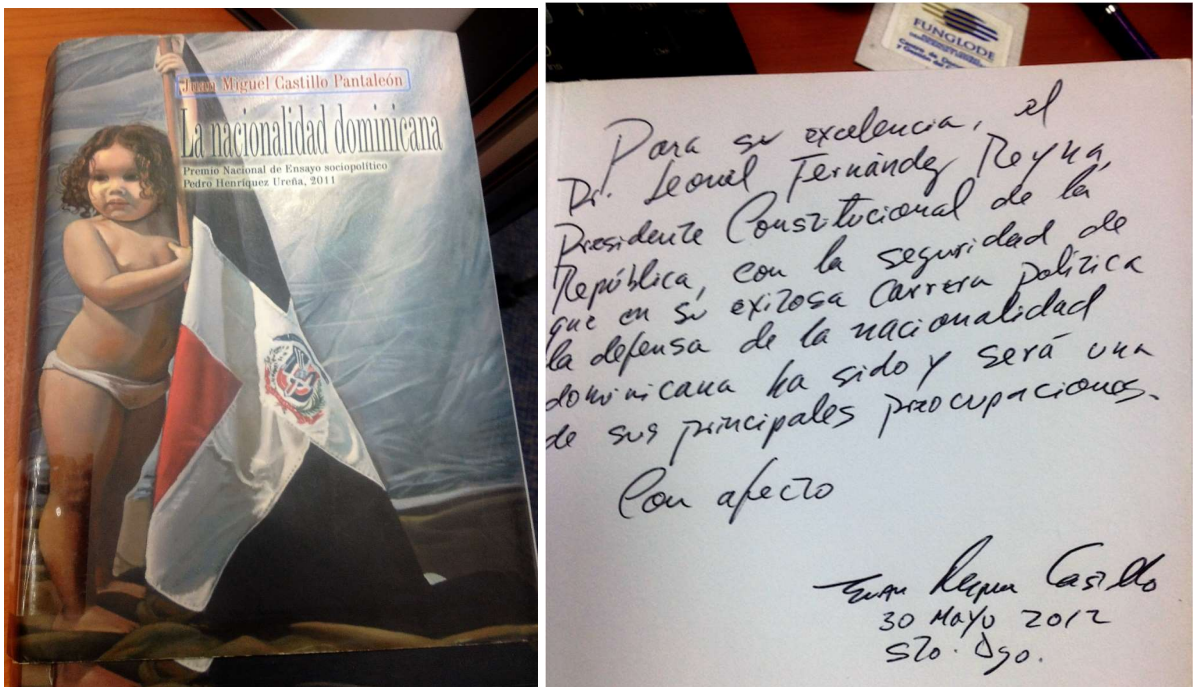 Juan Miguel Castillo Pantaleón
La nacionalidad dominicana
Premio Nacional de Ensayo sociopolítico
Pedro Henríquez Ureña, 2011
FUNGLODE
Para su excelencia, el
Dr. Leonel Fernández Reyna,
Presidente Constitucional de la
República, con la seguridad de
que en su exitosa carrera política
la defensa de la nacionalidad
dominicana ha sido y será una
de sus principales preocupaciones.
Con afecto
Castillo
30 Mayo 2012
Sto. Dgo.